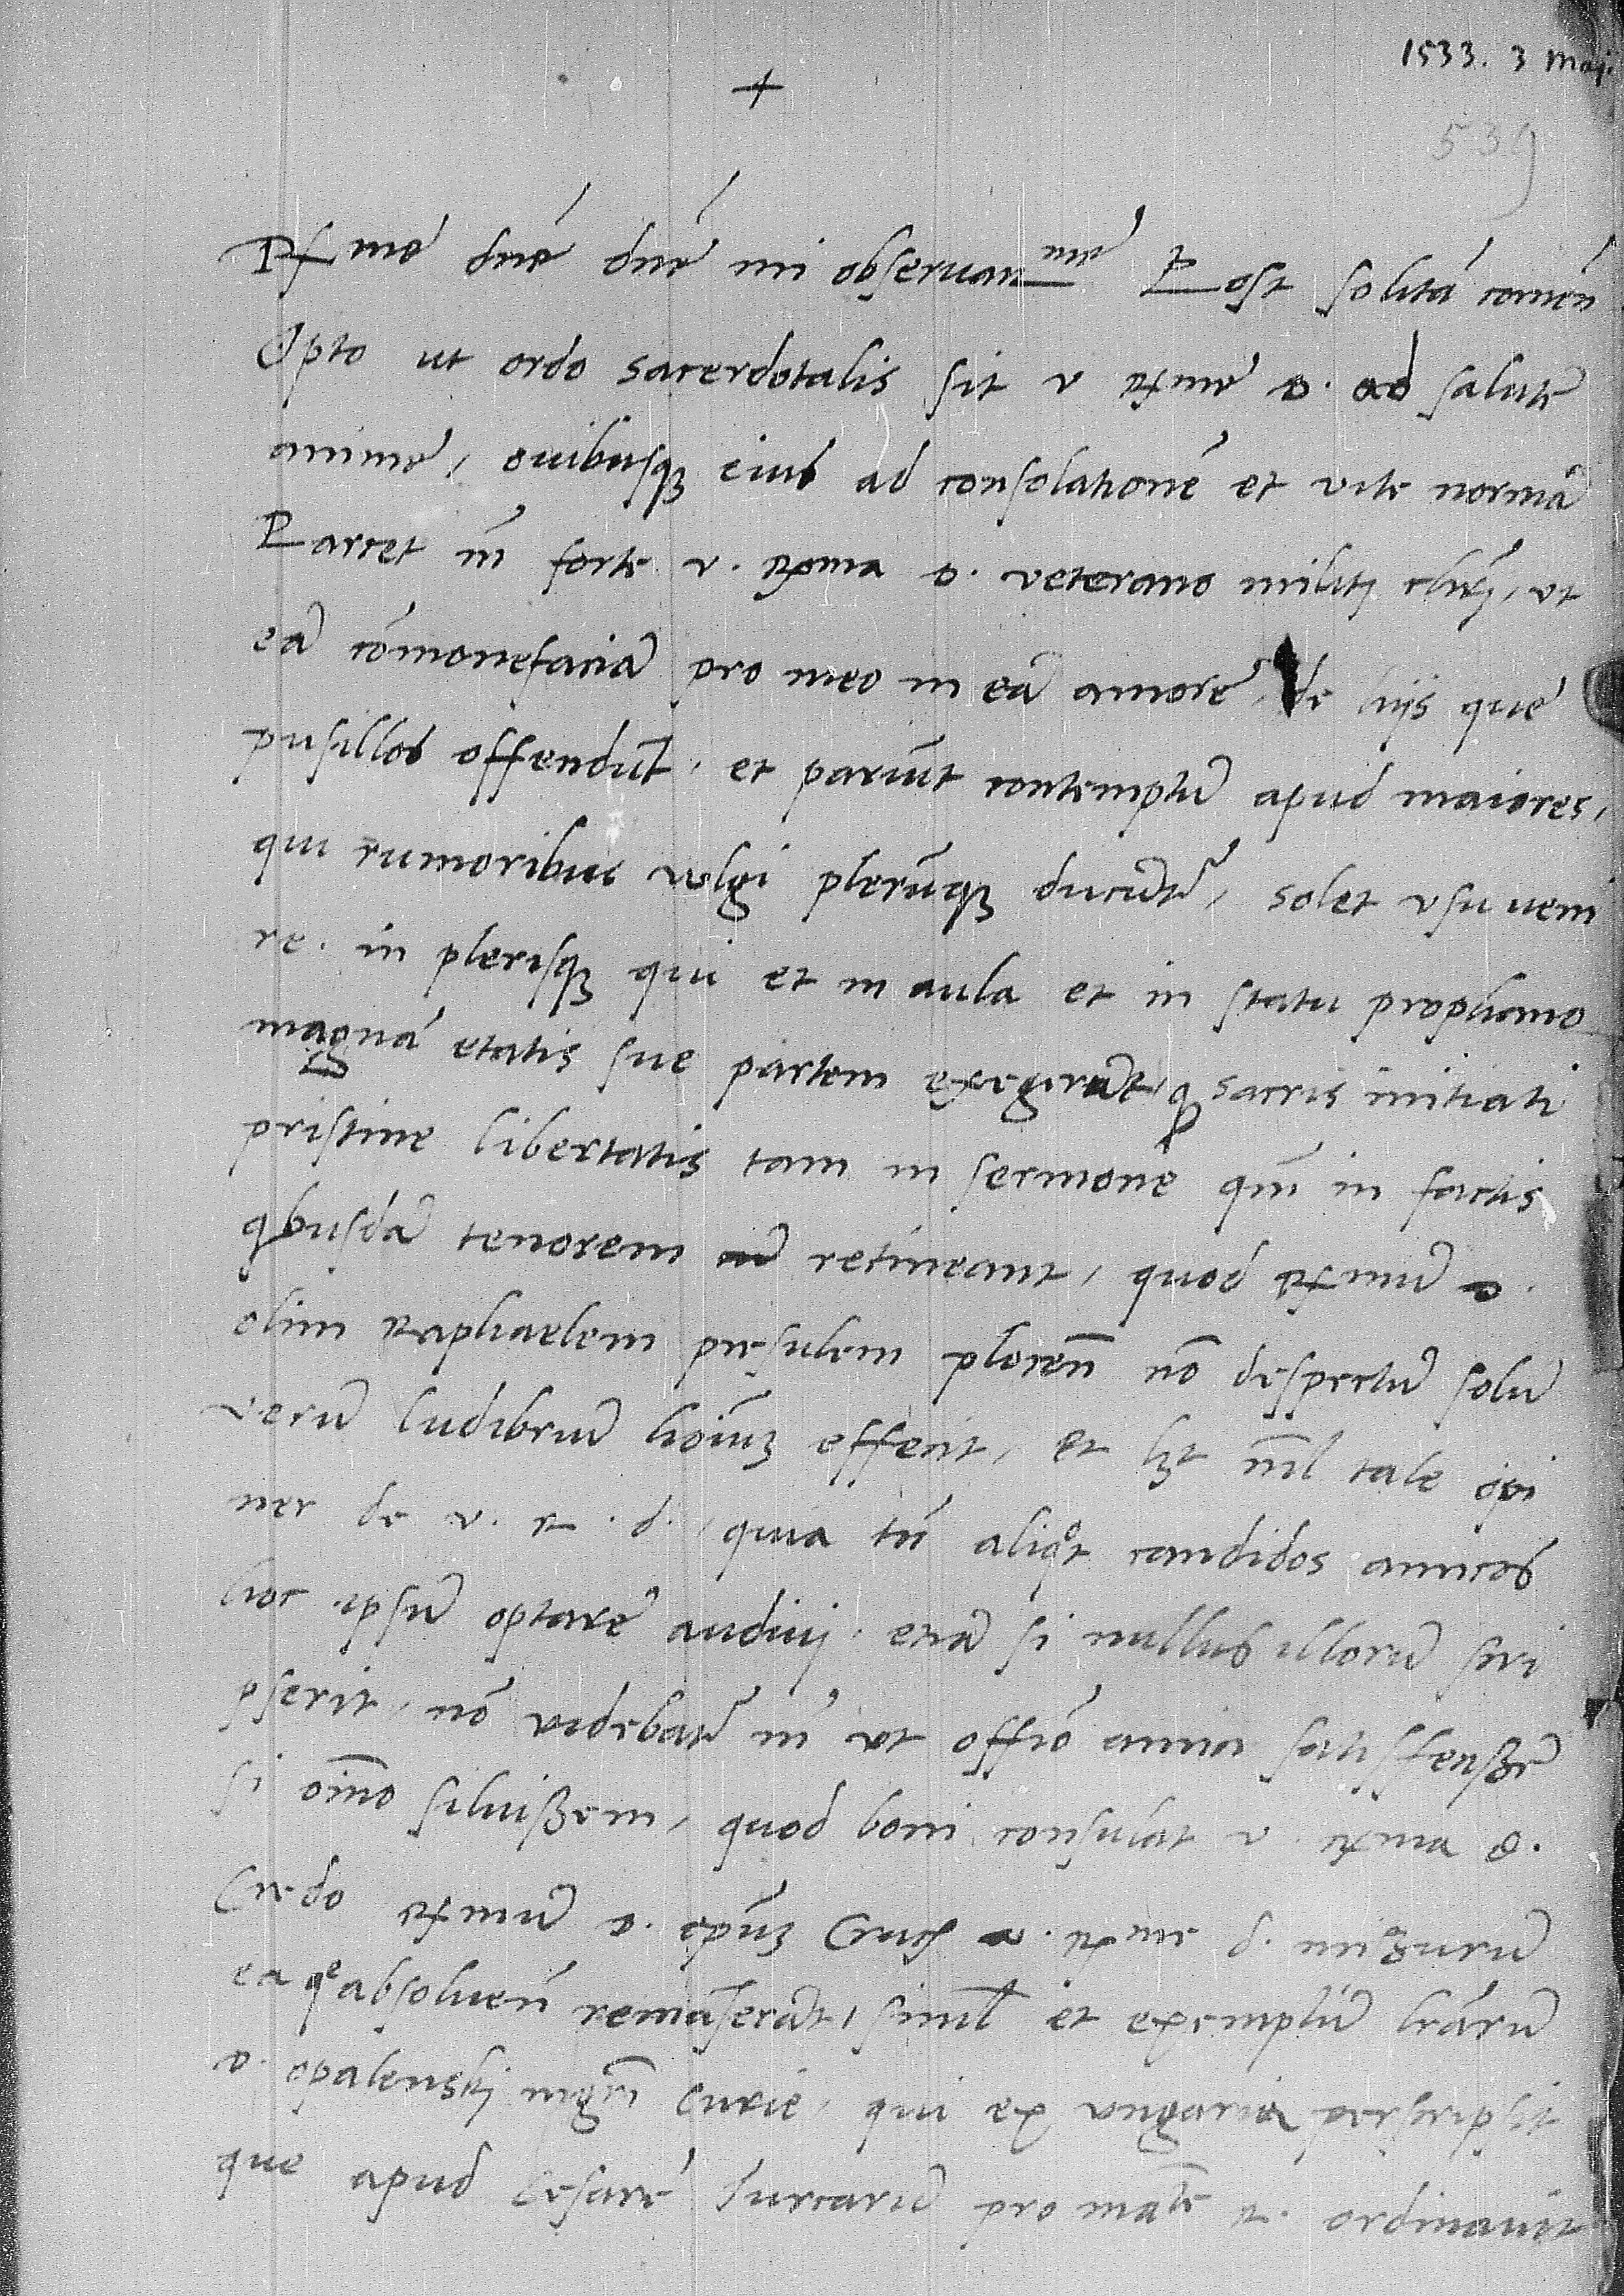 1533. 3 Maji
+
539
R[x]me dne dne mi observan[me] Post solitã comen
Opto ut ordo sacerdotalis sit v rxme d. ad salutẽ
anime, ovibusq; eius ad consolationẽ et vite normã
Parcet m̃ forte v. Rxma d. veterano militj , ut
eã cõmonefaciã pro meo in eã amore de hijs que
pusillos offendũt, et pariũt contemptũ apud maiores,
qui rumoribus vulgi plerũq; ducũtr, solet usu veni
re. in plerisq; qui et in aula et in statu prophano
magnã etatis sue partem exegerãt, q sacris initiati
pristine libertatis tam in sermone qm̃ in factis
qbusdã tenorem retineant, quod rxmũ d.
olim Raphaelem presulem plocen̄ nõ despectũ solũ
verũ ludibriũ hoĩm effecit, et lꝫt nil tale opi
ner de v. r. d., quia tñ aliqot candidos amicos
hoc ipsũ optare audivj. etiã si nullus illorũ scri
pserit, nõ videbatr m̃ ut offõ amici satisfecisse
si oĩno siluissem, quod boni consulat v. rxma d.
Credo rxmũ d. epũm Crac v. rxme d. missurũ
ea qe absoluen̄ remãserãt, simul et exemplũ lrãrũ
d. opalenskj mgrĩ Curie, qui ex ungaria perscripsit
que apud Cesarẽ turcarũ pro mãte r. ordinavit